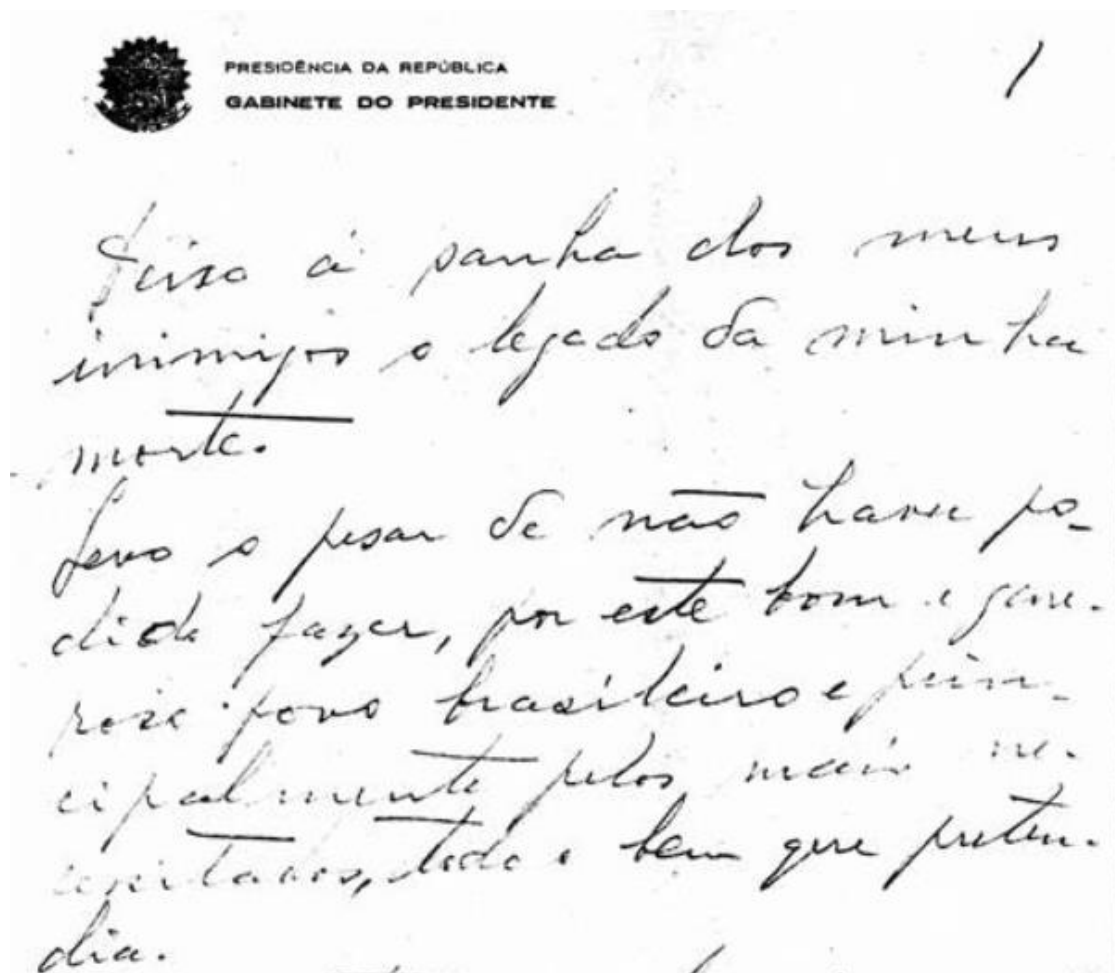 PRESIDÊNCIA DA REPÚBLICA
GABINETE DO PRESIDENTE
1
Deixo à sanha dos meus
inimigos o legado da minha
morte.
Levo o pesar de não haver po-
dido fazer, por este bom e gene-
roso povo brasileiro e prin-
cipalmente pelos mais ne-
cessitados, todo o bem que preten-
dia.